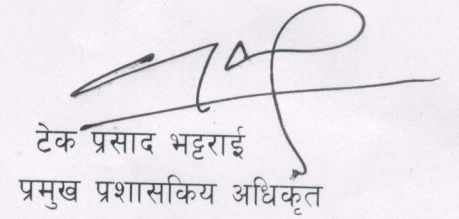 टेक प्रसाद भट्टराई
प्रमुख प्रशासकिय अधिकृत